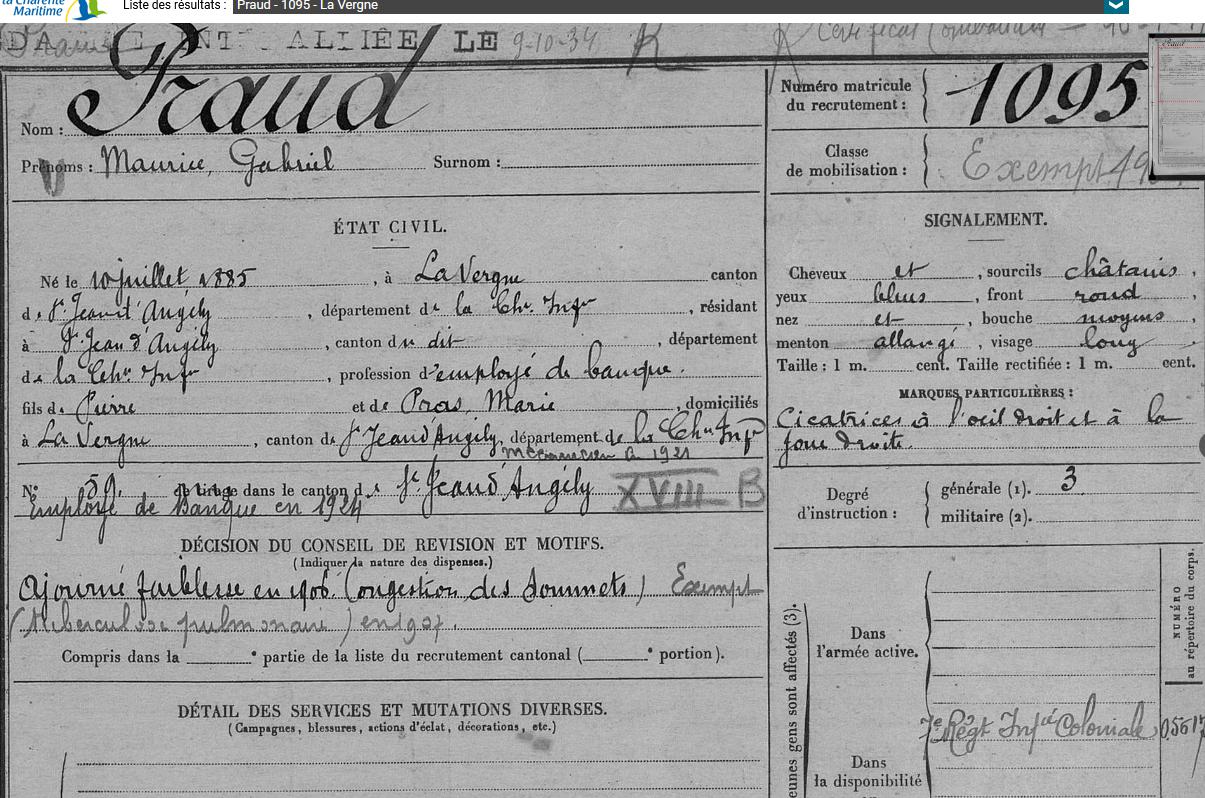 la Charente
Maritime
Liste des résultats : Praud - 1095 - La Vergne
ALLIÉE LE 9-10-34
Nom : Praud
Prénoms : Maurice, Gabriel Surnom :
Numéro matricule
du recrutement : 1095
Classe
de mobilisation : Exempt 19
ÉTAT CIVIL.
Né le 10 juillet 1885, à La Vergne canton
de St Jean d'Angély, département de la Chte Infre, résidant
à St Jean d'Angély, canton du dit, département
de la Chte Infre, profession d'employé de banque.
fils de Pierre et de Pros, Marie, domiciliés
à La Vergne, canton de St Jean d'Angély, département de la Chte Infre
mécanicien en 1921
No 59. de tirage dans le canton de St Jean d'Angély XVIII B
Employé de Banque en 1924
SIGNALEMENT.
Cheveux et, sourcils châtains,
yeux bleus, front rond,
nez et, bouche moyens,
menton allongé, visage long
Taille : 1 m. cent. Taille rectifiée : 1 m. cent.
MARQUES PARTICULIÈRES :
Cicatrices à l'oeil droit et à la
joue droite.
Degré
d'instruction :
générale (1). 3
militaire (2).
DÉCISION DU CONSEIL DE REVISION ET MOTIFS.
(Indiquer la nature des dispenses.)
Ajourné faiblesse en 1906. (Congestion des Sommets) Exempt
(Tuberculose pulmonaire) en 1907.
Compris dans la e partie de la liste du recrutement cantonal ( e portion).
DÉTAIL DES SERVICES ET MUTATIONS DIVERSES.
(Campagnes, blessures, actions d'éclat, décorations, etc.)
eunes gens sont affectés (3).
Dans
l'armée active.
NUMÉRO
au répertoire du corps.
7e Régt Infie Coloniale 0561
Dans
la disponibilité